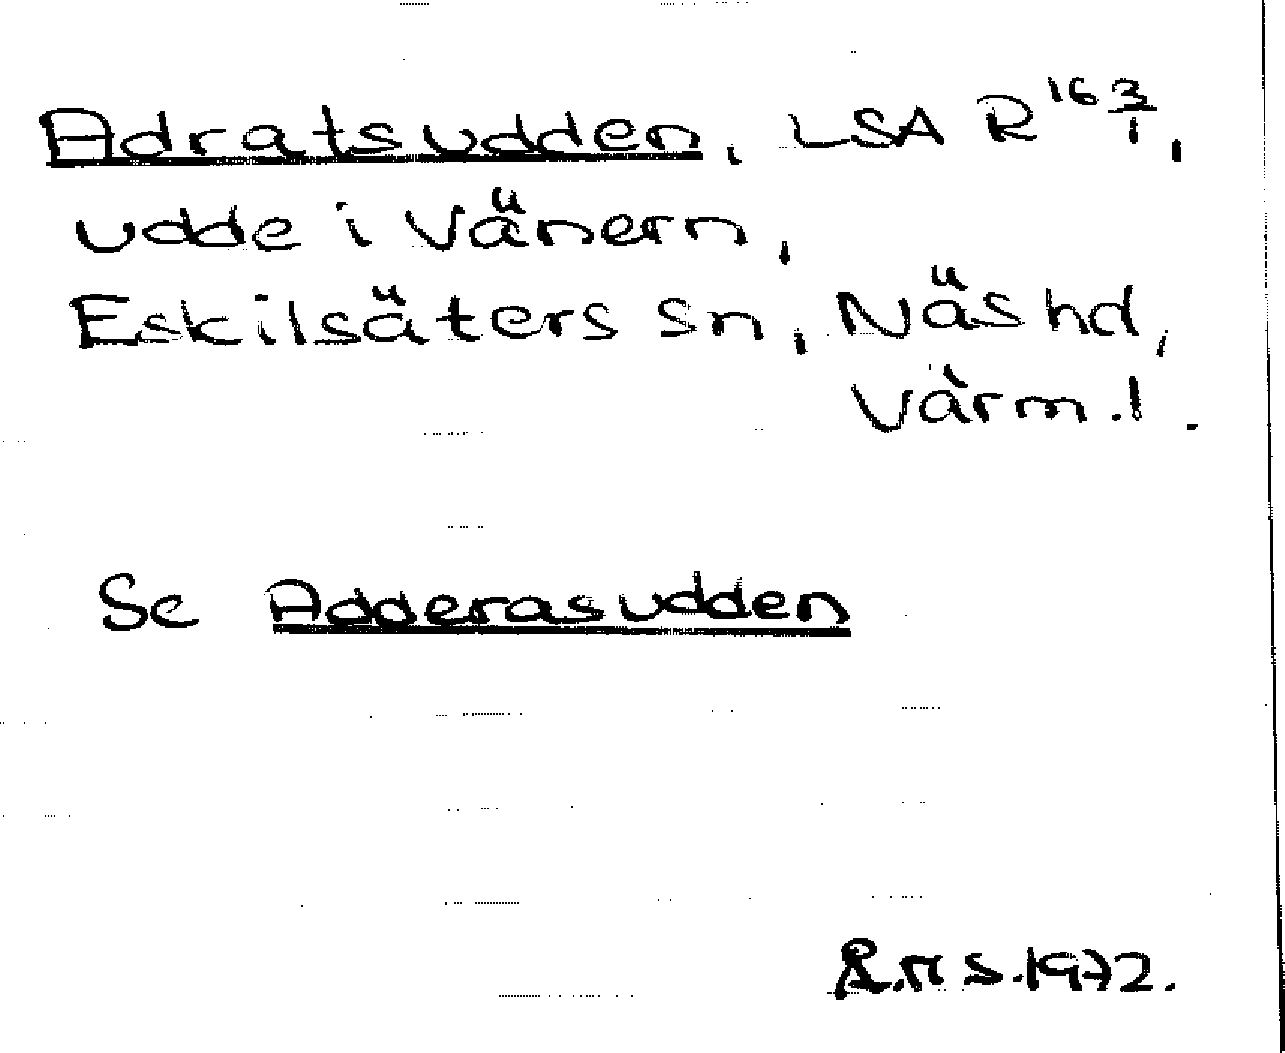 Adratsudden, LSA R 16 3/1,
udde i Vänern,
Eskilsäters sn, Näs hd,
Värml.
Se Adderasudden
R.n S. 1972.